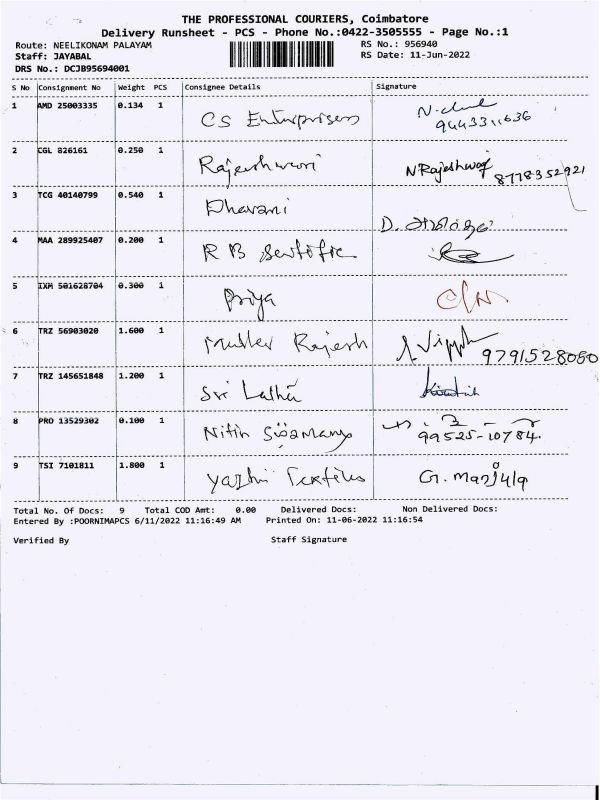 THE PROFESSIONAL COURIERS, Coimbatore
Delivery Runsheet - PCS - Phone No.:0422-3505555 - Page No.:1
Route: NEELIKONAM PALAYAM RS No.: 956940
Staff: JAYABAL RS Date: 11-Jun-2022
DRS No.: DCJB95694001
S No Consignment No Weight PCS Consignee Details Signature
1 AMD 25003335 0.134 1 CS Enterprises
9443311636
2 CGL 826161 0.250 1 Rajeshwari N Rajeshwari 8778352921
3 TCG 40140799 0.540 1 Dharani
4 MAA 289925407 0.200 1 R B
5 IXM 501628704 0.300 1 Priya
6 TRZ 56903020 1.600 1 Rajesh 9791528050
7 TRZ 145651848 1.200 1 Sri Latha
8 PRO 13529302 0.100 1 Nitin
99525-10784.
9 TSI 7101811 1.800 1 Yazhi Textiles G. Manjula
Total No. Of Docs: 9 Total COD Amt: 0.00 Delivered Docs: Non Delivered Docs:
Entered By :POORNIMAPCS 6/11/2022 11:16:49 AM Printed On: 11-06-2022 11:16:54
Verified By Staff Signature